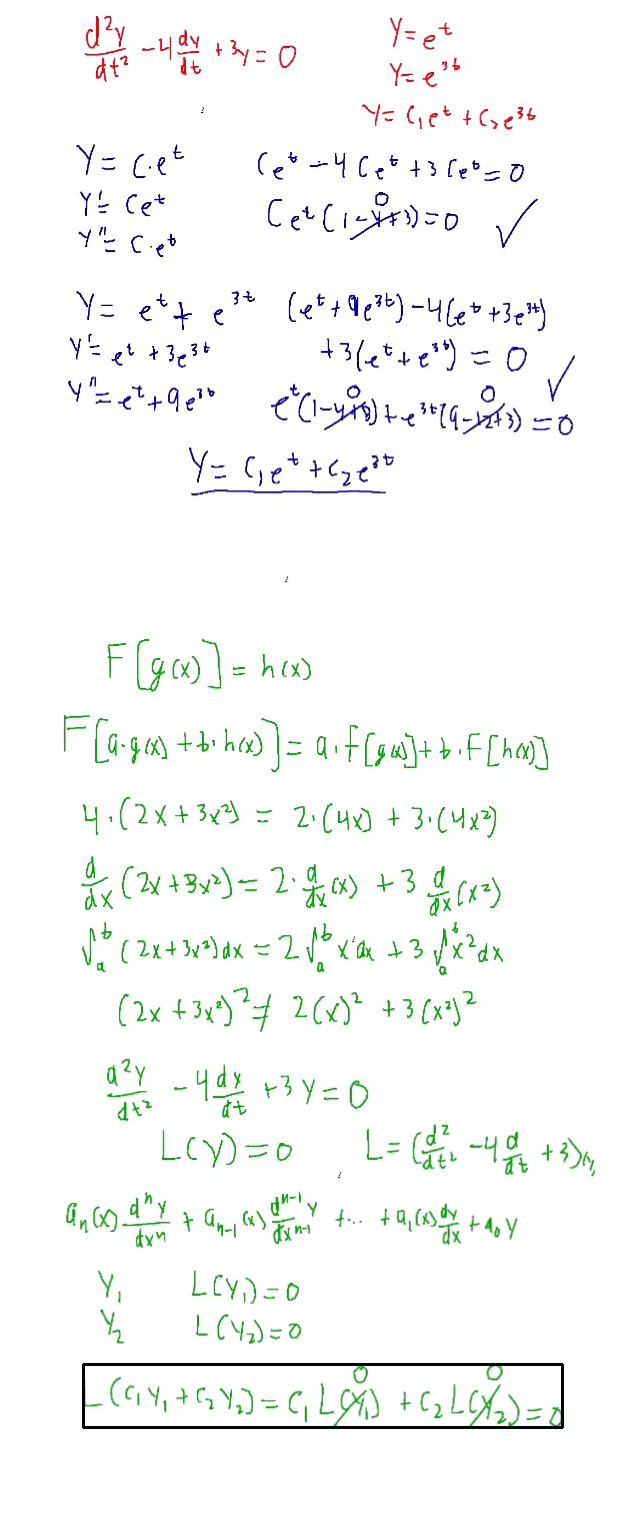 d²y/dt² - 4 dy/dt + 3y = 0
y = e^t
y = e^3t
y = C₁e^t + C₂e^3t
y = C·e^t
y' = Ce^t
y'' = C·e^t
Ce^t - 4Ce^t + 3Ce^t = 0
Ce^t(1-4+3) = 0 ✓
0
y = e^t + e^3t
y' = e^t + 3e^3t
y'' = e^t + 9e^3t
(e^t + 9e^3t) - 4(e^t + 3e^3t)
+ 3(e^t + e^3t) = 0 ✓
0 0
e^t(1-4+3) + e^3t(9-12+3) = 0
y = C₁e^t + C₂e^3t
F[g(x)] = h(x)
F[a·g(x) + b·h(x)] = a·F[g(x)] + b·F[h(x)]
4·(2x + 3x²) = 2·(4x) + 3·(4x²)
d/dx (2x + 3x²) = 2·d/dx(x) + 3 d/dx(x²)
∫_a^b (2x + 3x²)dx = 2∫_a^b x dx + 3∫_a^b x² dx
(2x + 3x²)² ≠ 2(x)² + 3(x²)²
d²y/dt² - 4 dy/dt + 3y = 0
L(y) = 0 L = (d²/dt² - 4 d/dt + 3)y
a_n(x) d^n y/dx^n + a_n-1(x) d^n-1 y/dx^n-1 + ... + a₁(x) dy/dx + a₀y
y₁ L(y₁) = 0
y₂ L(y₂) = 0
0 0
L(C₁y₁ + C₂y₂) = C₁L(y₁) + C₂L(y₂) = 0